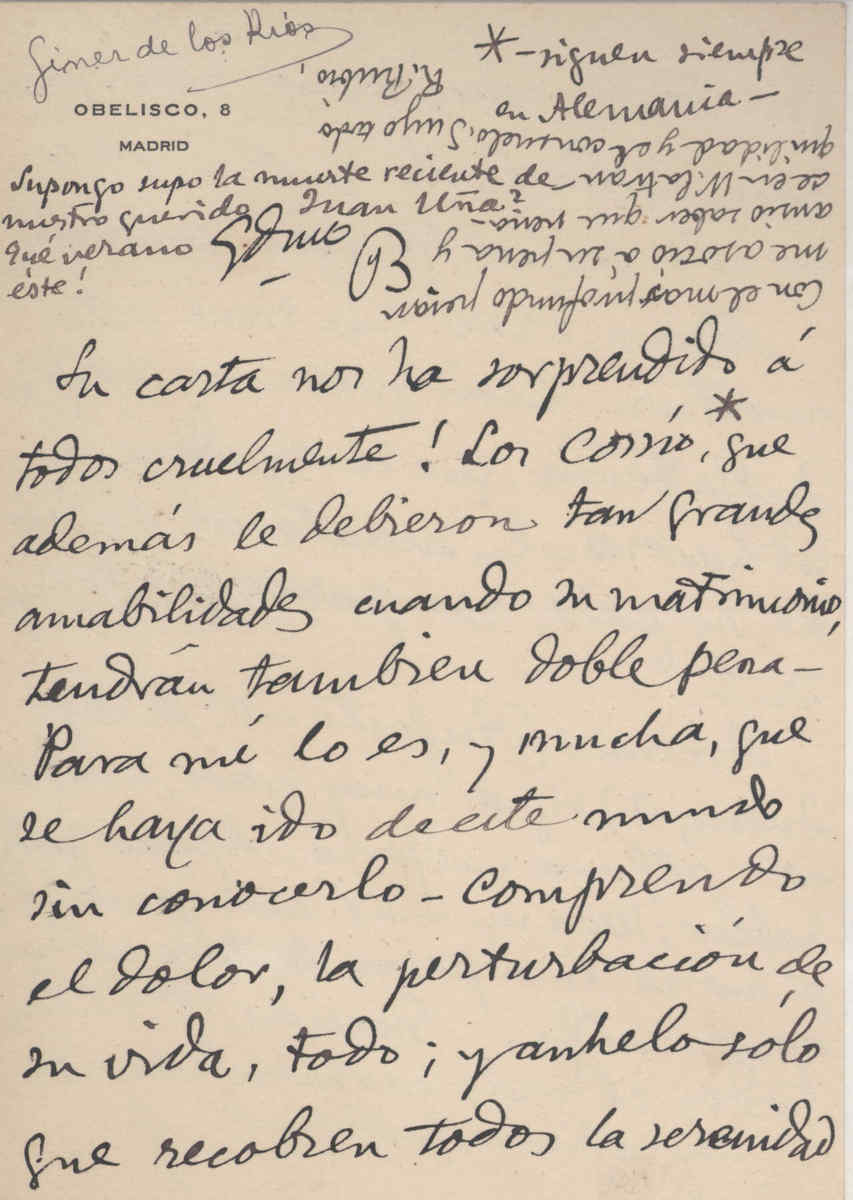 Giner de los Ríos
OBELISCO, 8
MADRID
*-siguen siempre
en Alemania-
Supongo supo la muerte reciente de
nuestro querido Juan Uña?
Qué verano
éste!
Con el más profundo pesar
me asocio a su pena y
ansío saber que
quilidad y el consuelo. Suyo todo
Su carta nos ha sorprendido á
todos cruelmente! Los Cossío,* que
además le debieron tan grandes
amabilidades cuando su matrimonio,
tendrán tambien doble pena-
Para mí lo es, y mucha, que
se haya ido de este mundo
sin conocerlo - comprendo
el dolor, la perturbación de
su vida, todo; y anhelo sólo
que recobren todos la serenidad